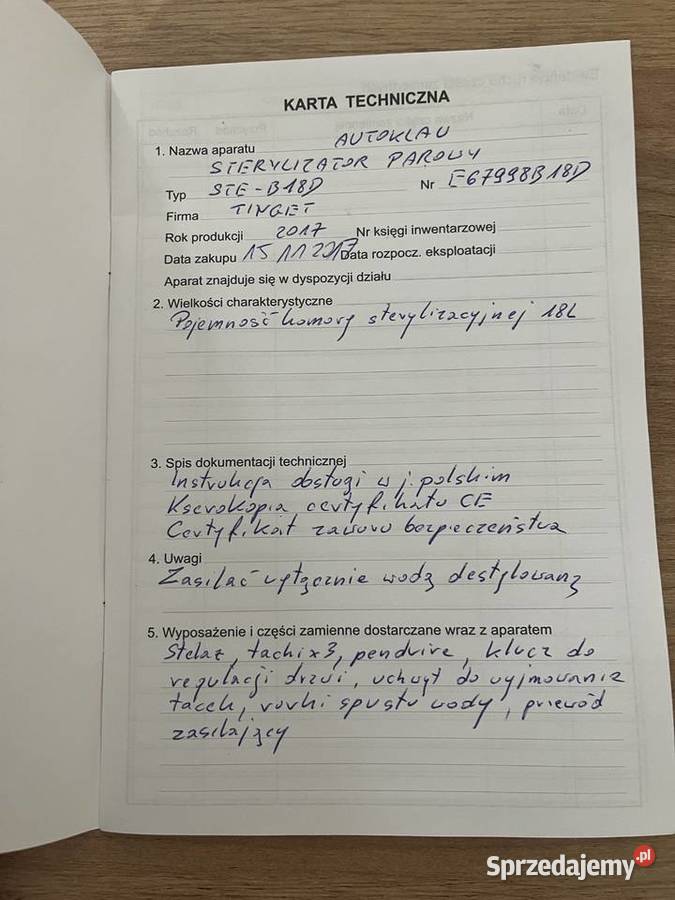 KARTA TECHNICZNA
AUTOKLAU
1. Nazwa aparatu
STERYLIZATOR PAROWY
Typ STE-B18D Nr E67998B18D
Firma TINGET
Rok produkcji 2017 Nr księgi inwentarzowej
Data zakupu 15 11 2017 Data rozpocz. eksploatacji
Aparat znajduje się w dyspozycji działu
2. Wielkości charakterystyczne
Pojemność komory sterylizacyjnej 18L
3. Spis dokumentacji technicznej
Instrukcja obsługi w j. polskim
Kserokopia certyfikatu CE
Certyfikat zaworu bezpieczeństwa
4. Uwagi
Zasilać wyłącznie wodą destylowaną
5. Wyposażenie i części zamienne dostarczane wraz z aparatem
Stelaż, tacki x3, pendrive, klucz do
regulacji drzwi, uchwyt do wyjmowania
tacek, rurki spustu wody, przewód
zasilający
Sprzedajemy.pl